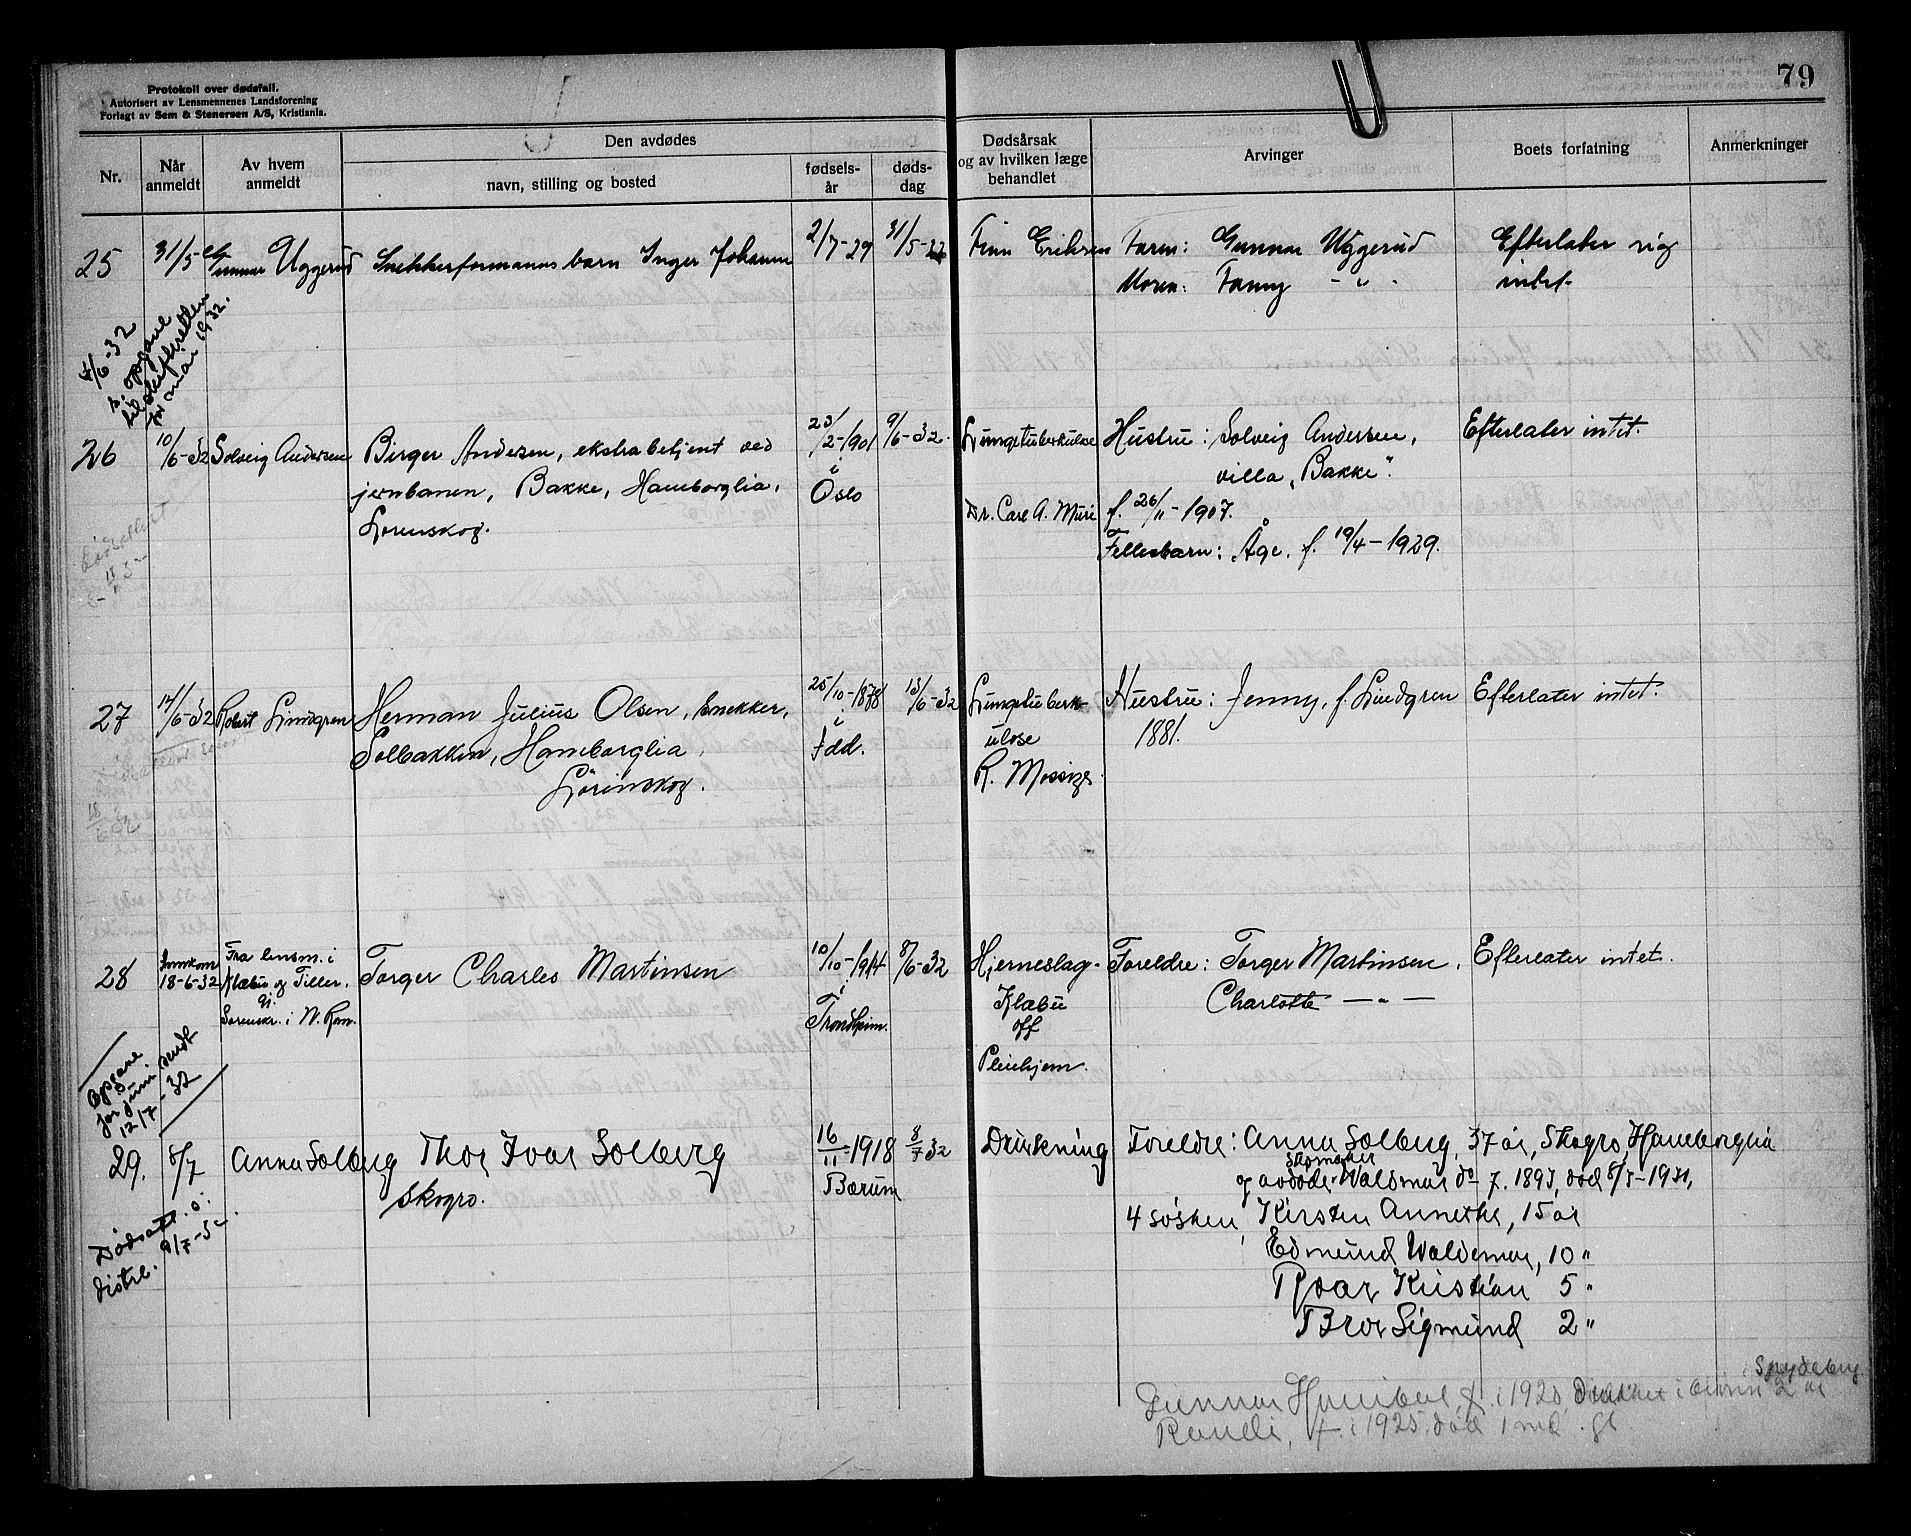 Protokoll over dødsfall.
Autorisert av Lensmennenes Landsforening
Forlagt av Sem & Stenersen A/S, Kristiania.
79
Nr.
Når anmeldt
Av hvem anmeldt
Den avdødes
navn, stilling og bosted
fødsels-år
døds-dag
Dødsårsak og av hvilken læge behandlet
Arvinger
Boets forfatning
Anmerkninger
25 31/5- Gunnar Uggerud Snekkerformanns barn Inger Johanne 2/7-29 31/5-32 Finn Eriksen Faren: Gunnar Uggerud Efterlater sig
Moren: Fanny - " - intet.
4/6-32
s. opgave
til skifteretten
for mai 1932.
26 10/6-32 Solveig Andersen Birger Andersen, ekstrabetjent ved 23/2-1901 9/6-32. Lungetuberkulose Hustru: Solveig Andersen, Efterlater intet.
jernbanen, Bakke, Haneborglia, i Oslo villa "Bakke".
Lørenskog. Dr. Carl A. Muri f. 26/11-1907.
Fellesbarn: Åge. f. 19/4-1929.
27 14/6-32 Robert Lindgren Herman Julius Olsen, snekker, 25/10-1878 13/6-32 Lungetuberk- Hustru: Jenny, f. Lindgren Efterlater intet.
Solbakken, Haneborglia, i Fdd. ulose 1881.
Lørenskog. R. Mossige.
28 Innkom Fra lensm. i Torger Charles Martinsen 10/10-1914 8/6-32 Hjerneslag- Foreldre: Torger Martinsen, Efterlater intet.
18-6-32 Klæbu og Tiller, i Klæbu Charlotte — " —
Sorenskr. i N. Rom. Trondheim. off
Pleiehjem.
Opgave
for juni sendt
12/7-32
29. 8/7 Anna Solberg Thor Ivar Solberg 16/11-1918 8/7 32 Drukning Foreldre: Anna Solberg, 37 år, Skogro, Haneborglia
Skogro. Bærum skomaker
og avdøde Waldemar do f. 1893, død 8/5-1931,
4 søsken, Kirsten Annethe, 15 år
Edmund Waldemar, 10 "
Roar Kristian 5 "
Bror Sigmund 2 "
Dødsatt. 9/7-32.
distr.
Spydeberg
Gunnar Hanibal, f. i 1920, druknet i 2 år
Randi, f. i 1925. død 1 md. gl